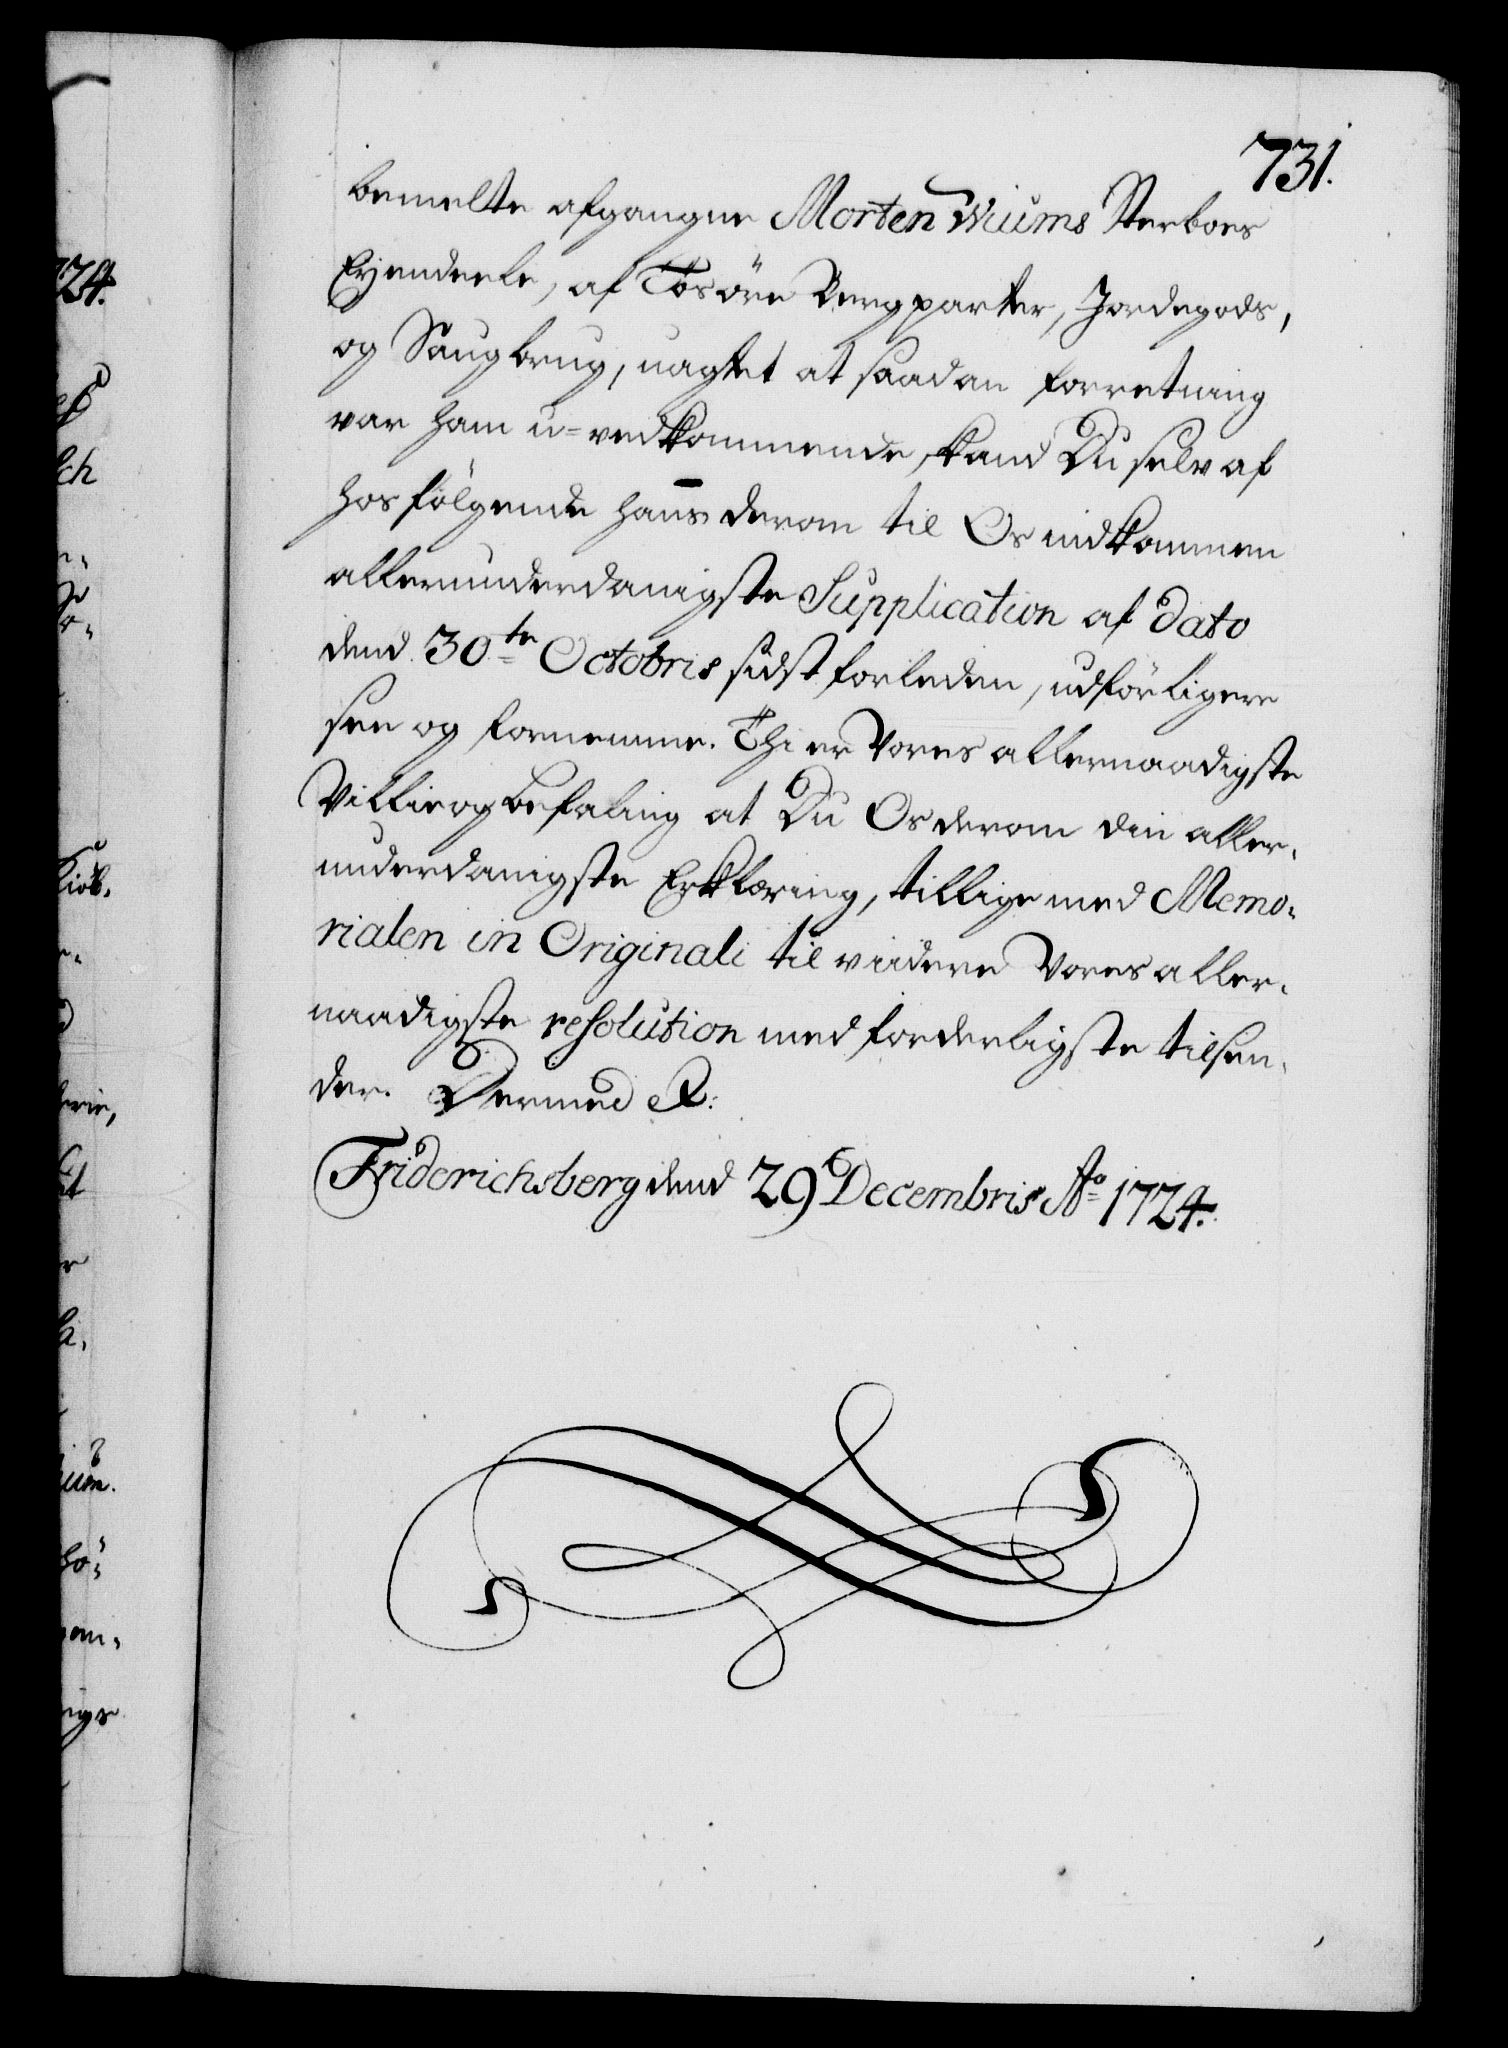 731.
bemelte afgangne Morten Wiums Sterboes
Eyendeele, af Løsøre Bergparter, Jordegods,
og Saugbrug, uagtet at saadan forretning
var ham u=vedkommende, kand Du selv af
hosfølgende hans derom til Os indkommen
allerunderdanigste Supplication af dato
dend 30te Octobris sidst forleden, udførligere
see og fornemme. Thi er Vores allernaadigste
Villie og befaling at Du Os derom din aller-
underdanigste Erklæring, tillige med Memo-
rialen in Originali til viidere Vores aller-
naadigste resolution med forderligste tilsen-
der. Dermed R:
Friderichsberg dend 29 Decembris Ao 1724.